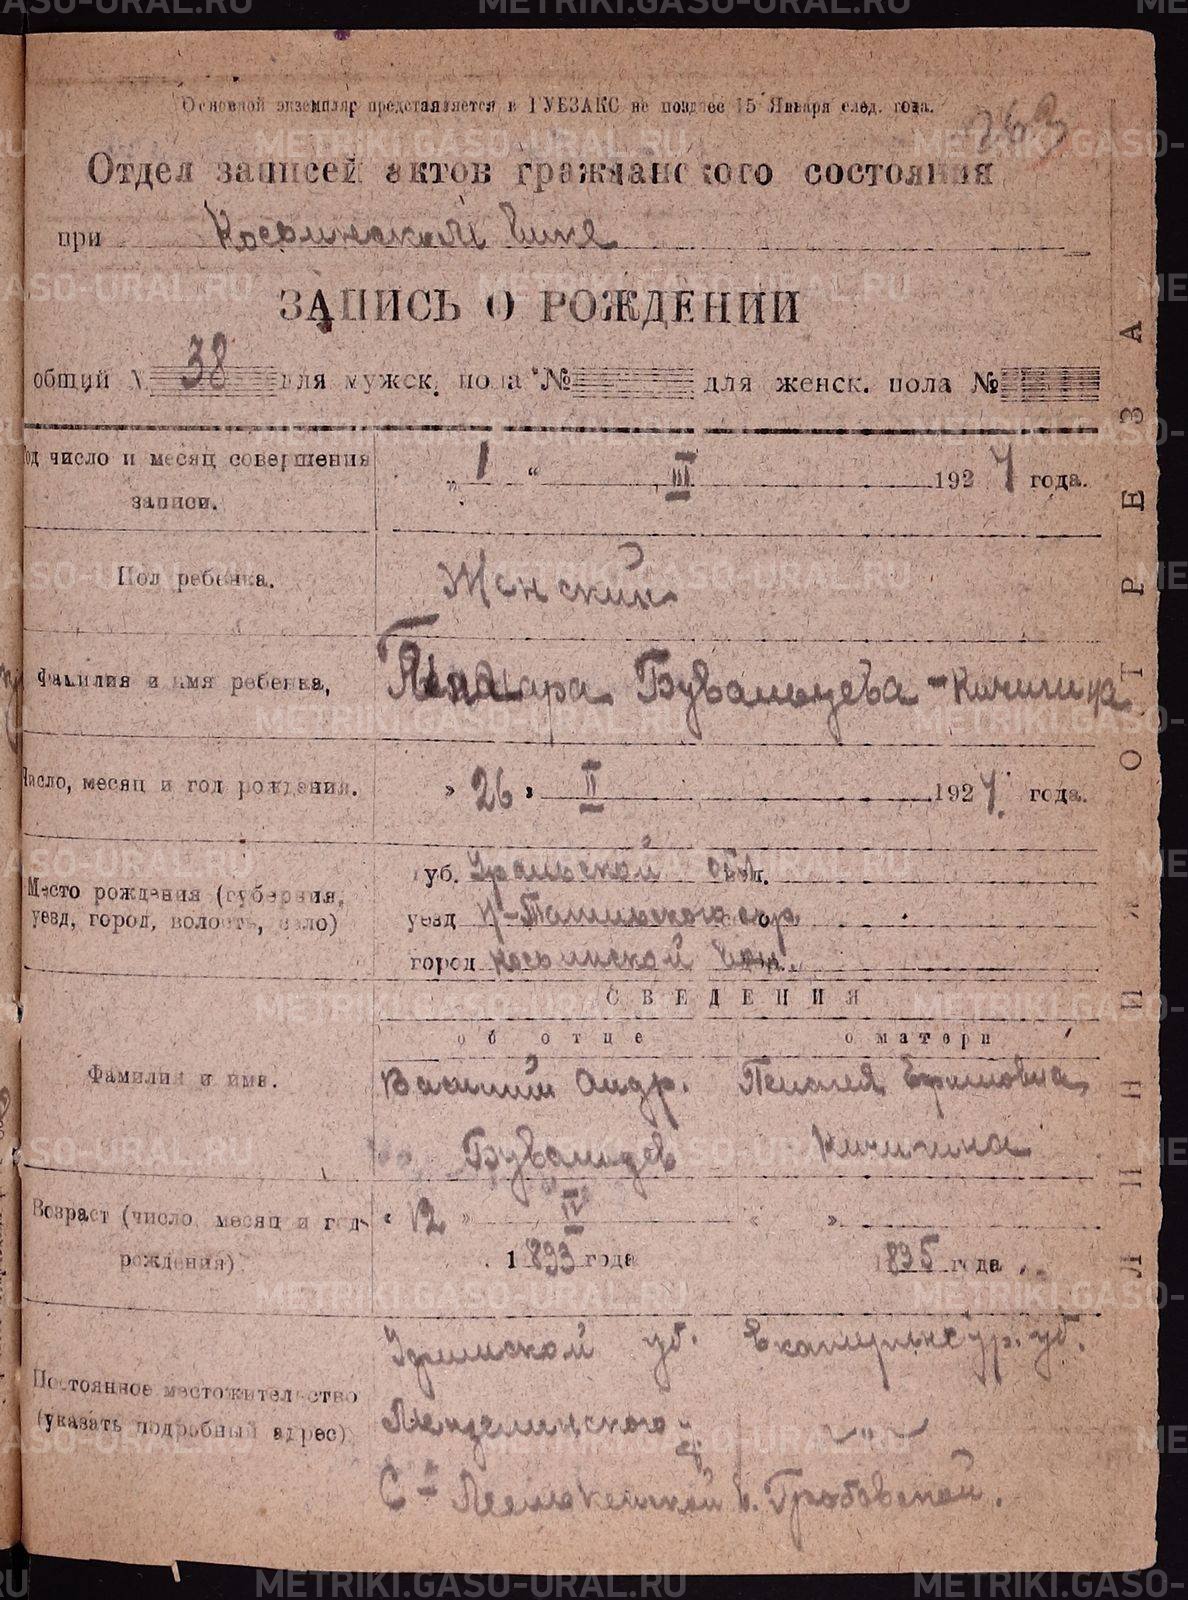 Основной экземпляр представляется в ГУБЗАКС не позднее 15 Января след. года.
263
Отдел записей актов гражданского состояния
при
ЗАПИСЬ О РОЖДЕНИИ
общий № 38 для мужск. пола № для женск. пола №
Год число и месяц совершения записи.
„ 1 “ III 1924 года.
Пол ребенка.
Женский
Фамилия и имя ребенка,
Бувальцева-Кичигина
Число, месяц и год рождения.
» 26 » II 1924 года.
Место рождения (губерния,
уезд, город, волость, село)
губ. Уральской обл.
уезд Н-Тагильского окр
город
СВЕДЕНИЯ
об отце
о матери
Фамилия и имя.
Василий Андр.
Пелагея Ефимовна
Бувальцев
Кичигина
Возраст (число, месяц и год
рождения)
« 12 » IV « »
1893 года
1895 года
Постоянное местожительство
(указать подробный адрес)
Уфимской уб.
Екатеринбур. уб.
Мензелинского у
— " —
Гробовской.
ЛИНИЯ ОТРЕЗА
METRIKI.GASO-URAL.RU